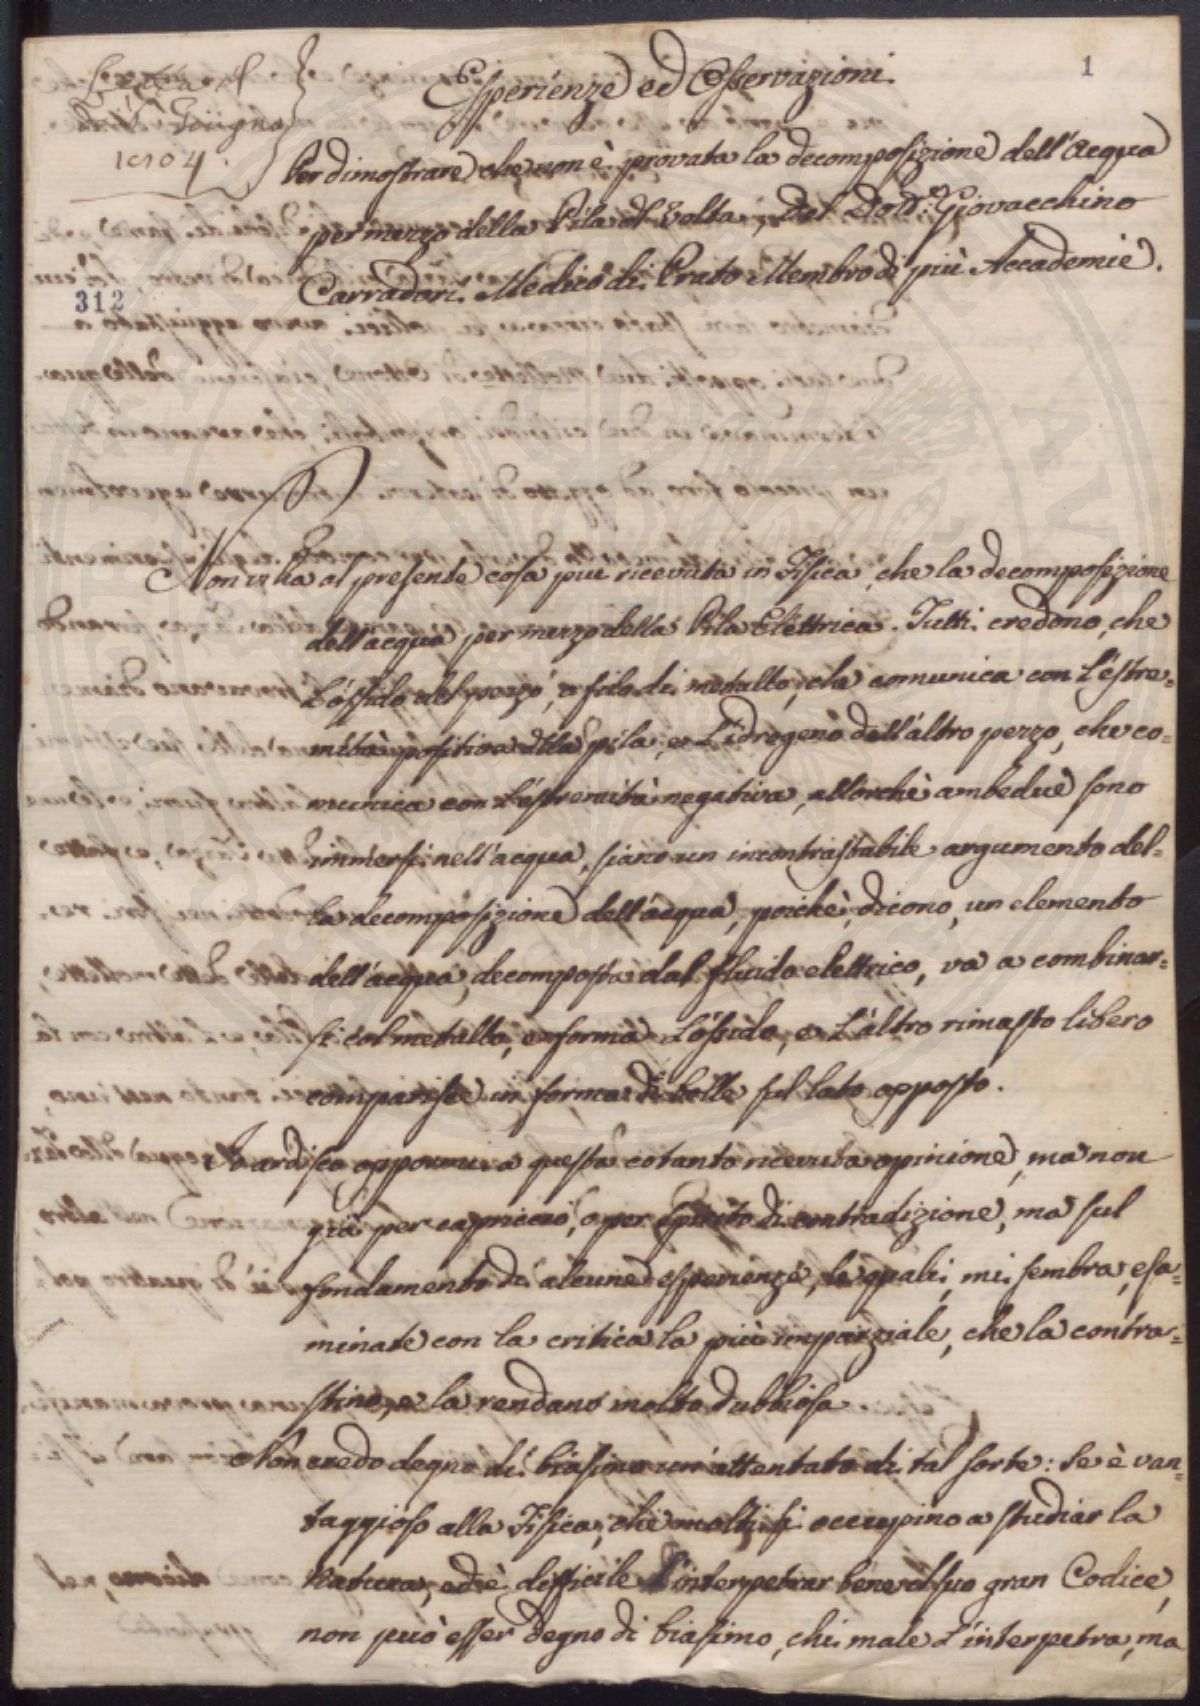 Letta il
dì 6 Giugno
1804.
1
Esperienze ed Osservazioni.
Per dimostrare che non è provata la decomposizione dell'Acqua
per mezzo della Pila di Volta, del Dott: Giovacchino
Carradori. Medico di Prato Membro di più Accademie.
312
Non vi ha al presente cosa piu ricevuta in Fisica, che la decomposizione
dell'acqua per mezzo della Pila Elettrica. Tutti credono, che
L'ossido del pezzo, o filo di metallo, che comunica con L'estre=
mità positiva della pila, e L'idrogeno dell'altro pezzo, che co=
munica con L'estremità negativa, allorchè ambedue sono
immersi nell'acqua, siano un incontrastabile argumento del=
la decomposizione dell'acqua, poichè, dicono, un elemento
dell'acqua, decomposta dal fluido elettrico, va a combinar=
si col metallo, e forma L'ossido, e L'altro rimasto libero
comparisce in forma di bolle sul lato opposto.
Io ardisco oppormi a questa cotanto ricevuta opinione, ma non
già per capriccio, o per spirito di contradizione, ma sul
fondamento di alcune esperienze, le quali, mi sembra, esa=
minate con la critica la più imparziale, che la contra=
stino, e la rendano molto dubbiosa.
Non credo degno di biasimo un'attentato di tal sorte: Se è van=
taggioso alla Fisica, che molti si occupino a studiar la
Natura, ed è difficile l'interpetrar bene il suo gran Codice,
non può esser degno di biasimo, chi male L'interpetra, ma